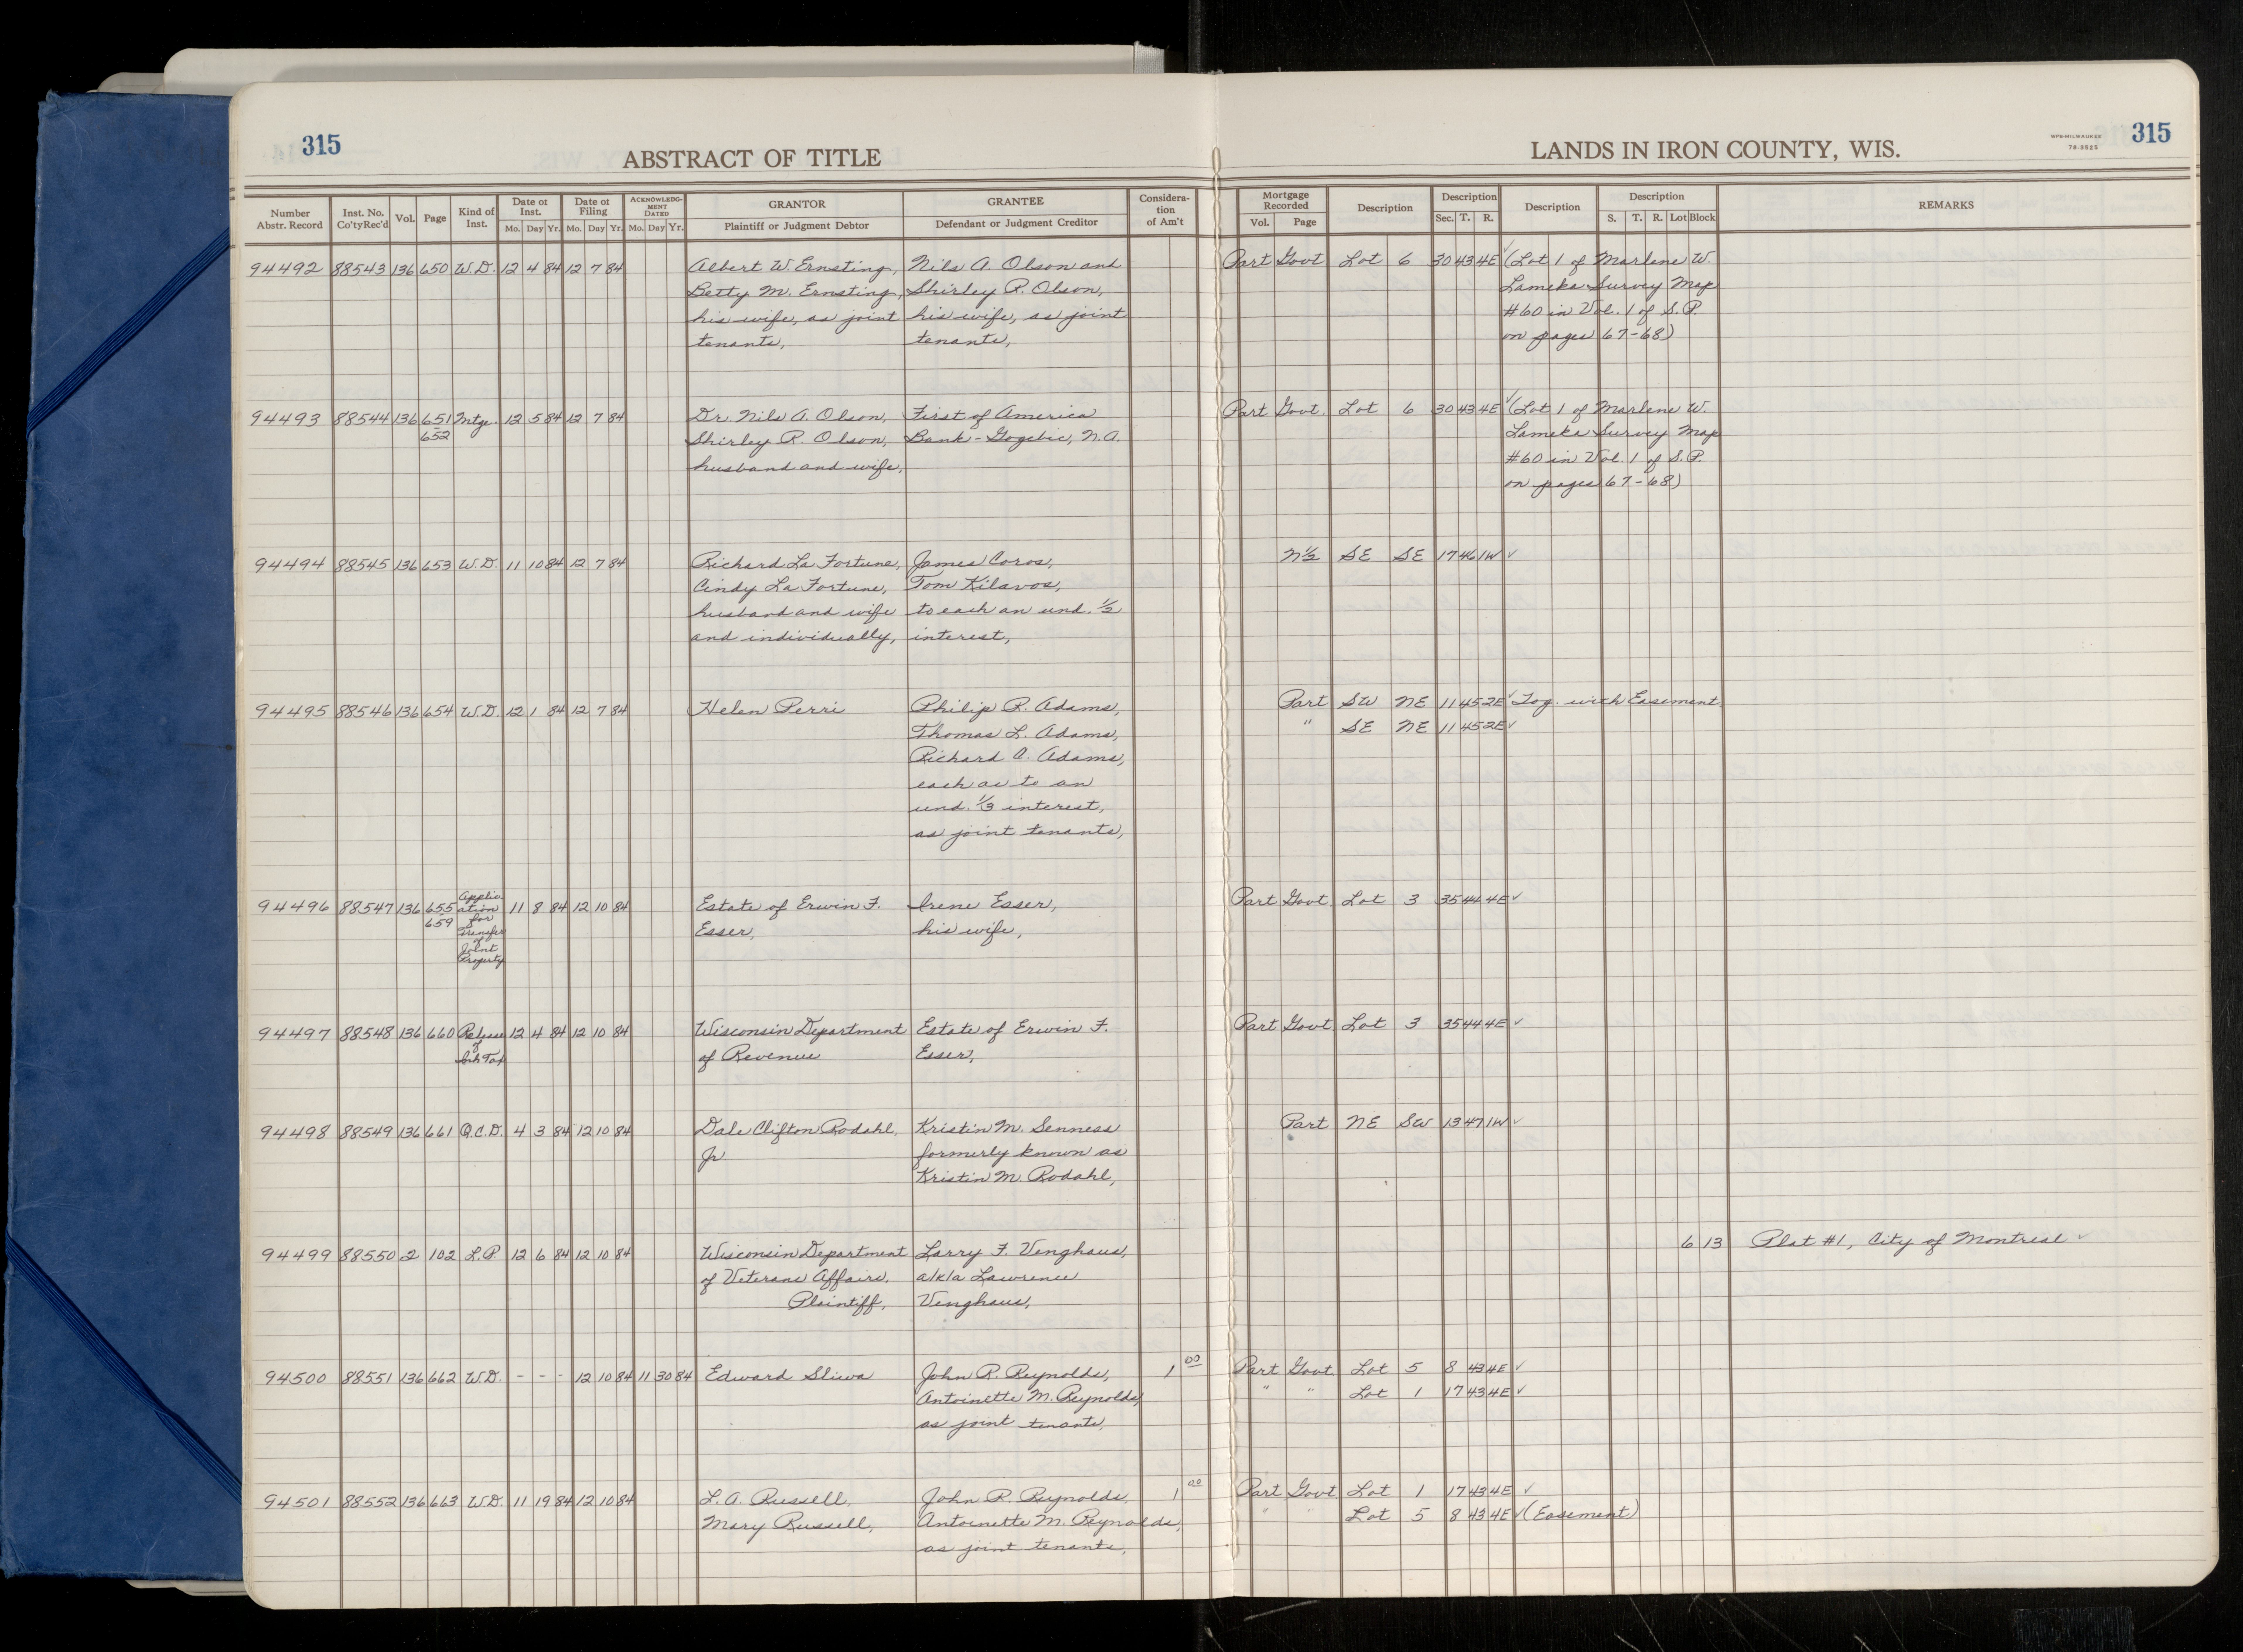 315
ABSTRACT OF TITLE
LANDS IN IRON COUNTY, WIS.
WPB-MILWAUKEE
78-3525
315
Number Abstr. Record
Inst. No. Co'ty Rec'd
Vol.
Page
Kind of Inst.
Date of Inst. Mo. Day Yr.
Date of Filing Mo. Day Yr.
ACKNOWLEDGMENT DATED Mo. Day Yr.
GRANTOR Plaintiff or Judgment Debtor
GRANTEE Defendant or Judgment Creditor
Consideration of Am't
Mortgage Recorded Vol. Page
Description
Description Sec. T. R.
Description
Description S. T. R. Lot Block
REMARKS
94492 88543 136 650 W.D. 12 4 84 12 7 84 Albert W. Ernsting, Nils A. Olson and Part Govt Lot 6 30 43 4E ✓ (Lot 1 of Marlene W.
Betty M. Ernsting, Shirley R. Olson, Lameka Survey Map
his wife, as joint his wife, as joint #60 in Vol. 1 of S.P.
tenants, tenants, on pages 67-68)
94493 88544 136 651 Mtge. 12 5 84 12 7 84 Dr. Nils A. Olson, First of America Part Govt. Lot 6 30 43 4E ✓ (Lot 1 of Marlene W.
652 Shirley R. Olson, Bank-Gogebic, N.A. Lameka Survey Map
husband and wife, #60 in Vol. 1 of S.P.
on pages 67-68)
94494 88545 136 653 W.D. 11 10 84 12 7 84 Richard La Fortune, James Coros, N½ SE SE 17 46 1W ✓
Cindy La Fortune, Tom Kilavos,
husband and wife to each an und. ½
and individually, interest,
94495 88546 136 654 W.D. 12 1 84 12 7 84 Helen Perri Philip R. Adams, Part SW NE 11 45 2E ✓ Tog. with Easement
Thomas L. Adams, " SE NE 11 45 2E ✓
Richard A. Adams,
each as to an
und. ⅓ interest,
as joint tenants,
94496 88547 136 655 Applic 11 8 84 12 10 84 Estate of Erwin F. Irene Esser, Part Govt. Lot 3 35 44 4E ✓
659 ation Esser, his wife,
for
Transfer
of
Joint
Property
94497 88548 136 660 Release 12 4 84 12 10 84 Wisconsin Department Estate of Erwin F. Part Govt Lot 3 35 44 4E ✓
of of Revenue Esser,
Inh Tax
94498 88549 136 661 Q.C.D. 4 3 84 12 10 84 Dale Clifton Rodahl, Kristin M. Senness Part NE SW 13 47 1W ✓
Jr. formerly known as
Kristin M. Rodahl,
94499 88550 2 102 L.P. 12 6 84 12 10 84 Wisconsin Department Larry F. Venghaus, 6 13 Plat #1, City of Montreal ✓
of Veterans Affairs, a/k/a Lawrence
Plaintiff, Venghaus,
94500 88551 136 662 W.D. - - - 12 10 84 11 30 84 Edward Sliwa John R. Reynolds, 1 00 Part Govt. Lot 5 8 43 4E ✓
Antoinette M. Reynolds, " " Lot 1 17 43 4E ✓
as joint tenants,
94501 88552 136 663 W.D. 11 19 84 12 10 84 L.A. Russell, John R. Reynolds, 1 00 Part Govt Lot 1 17 43 4E ✓
Mary Russell, Antoinette M. Reynolds, " " Lot 5 8 43 4E ✓ (Easement)
as joint tenants,